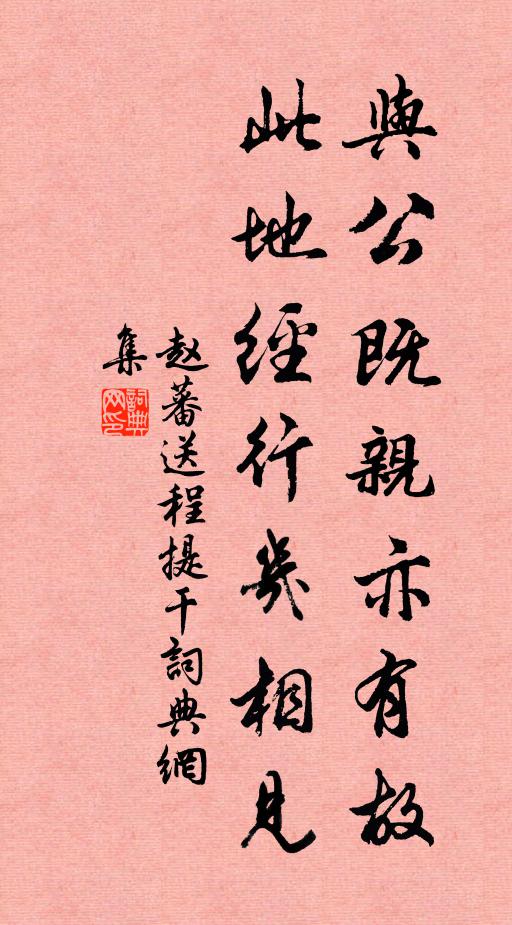 與公既親亦有故
此地經行幾相見
赵蕃送程提干詞典網
集
詞典
网印